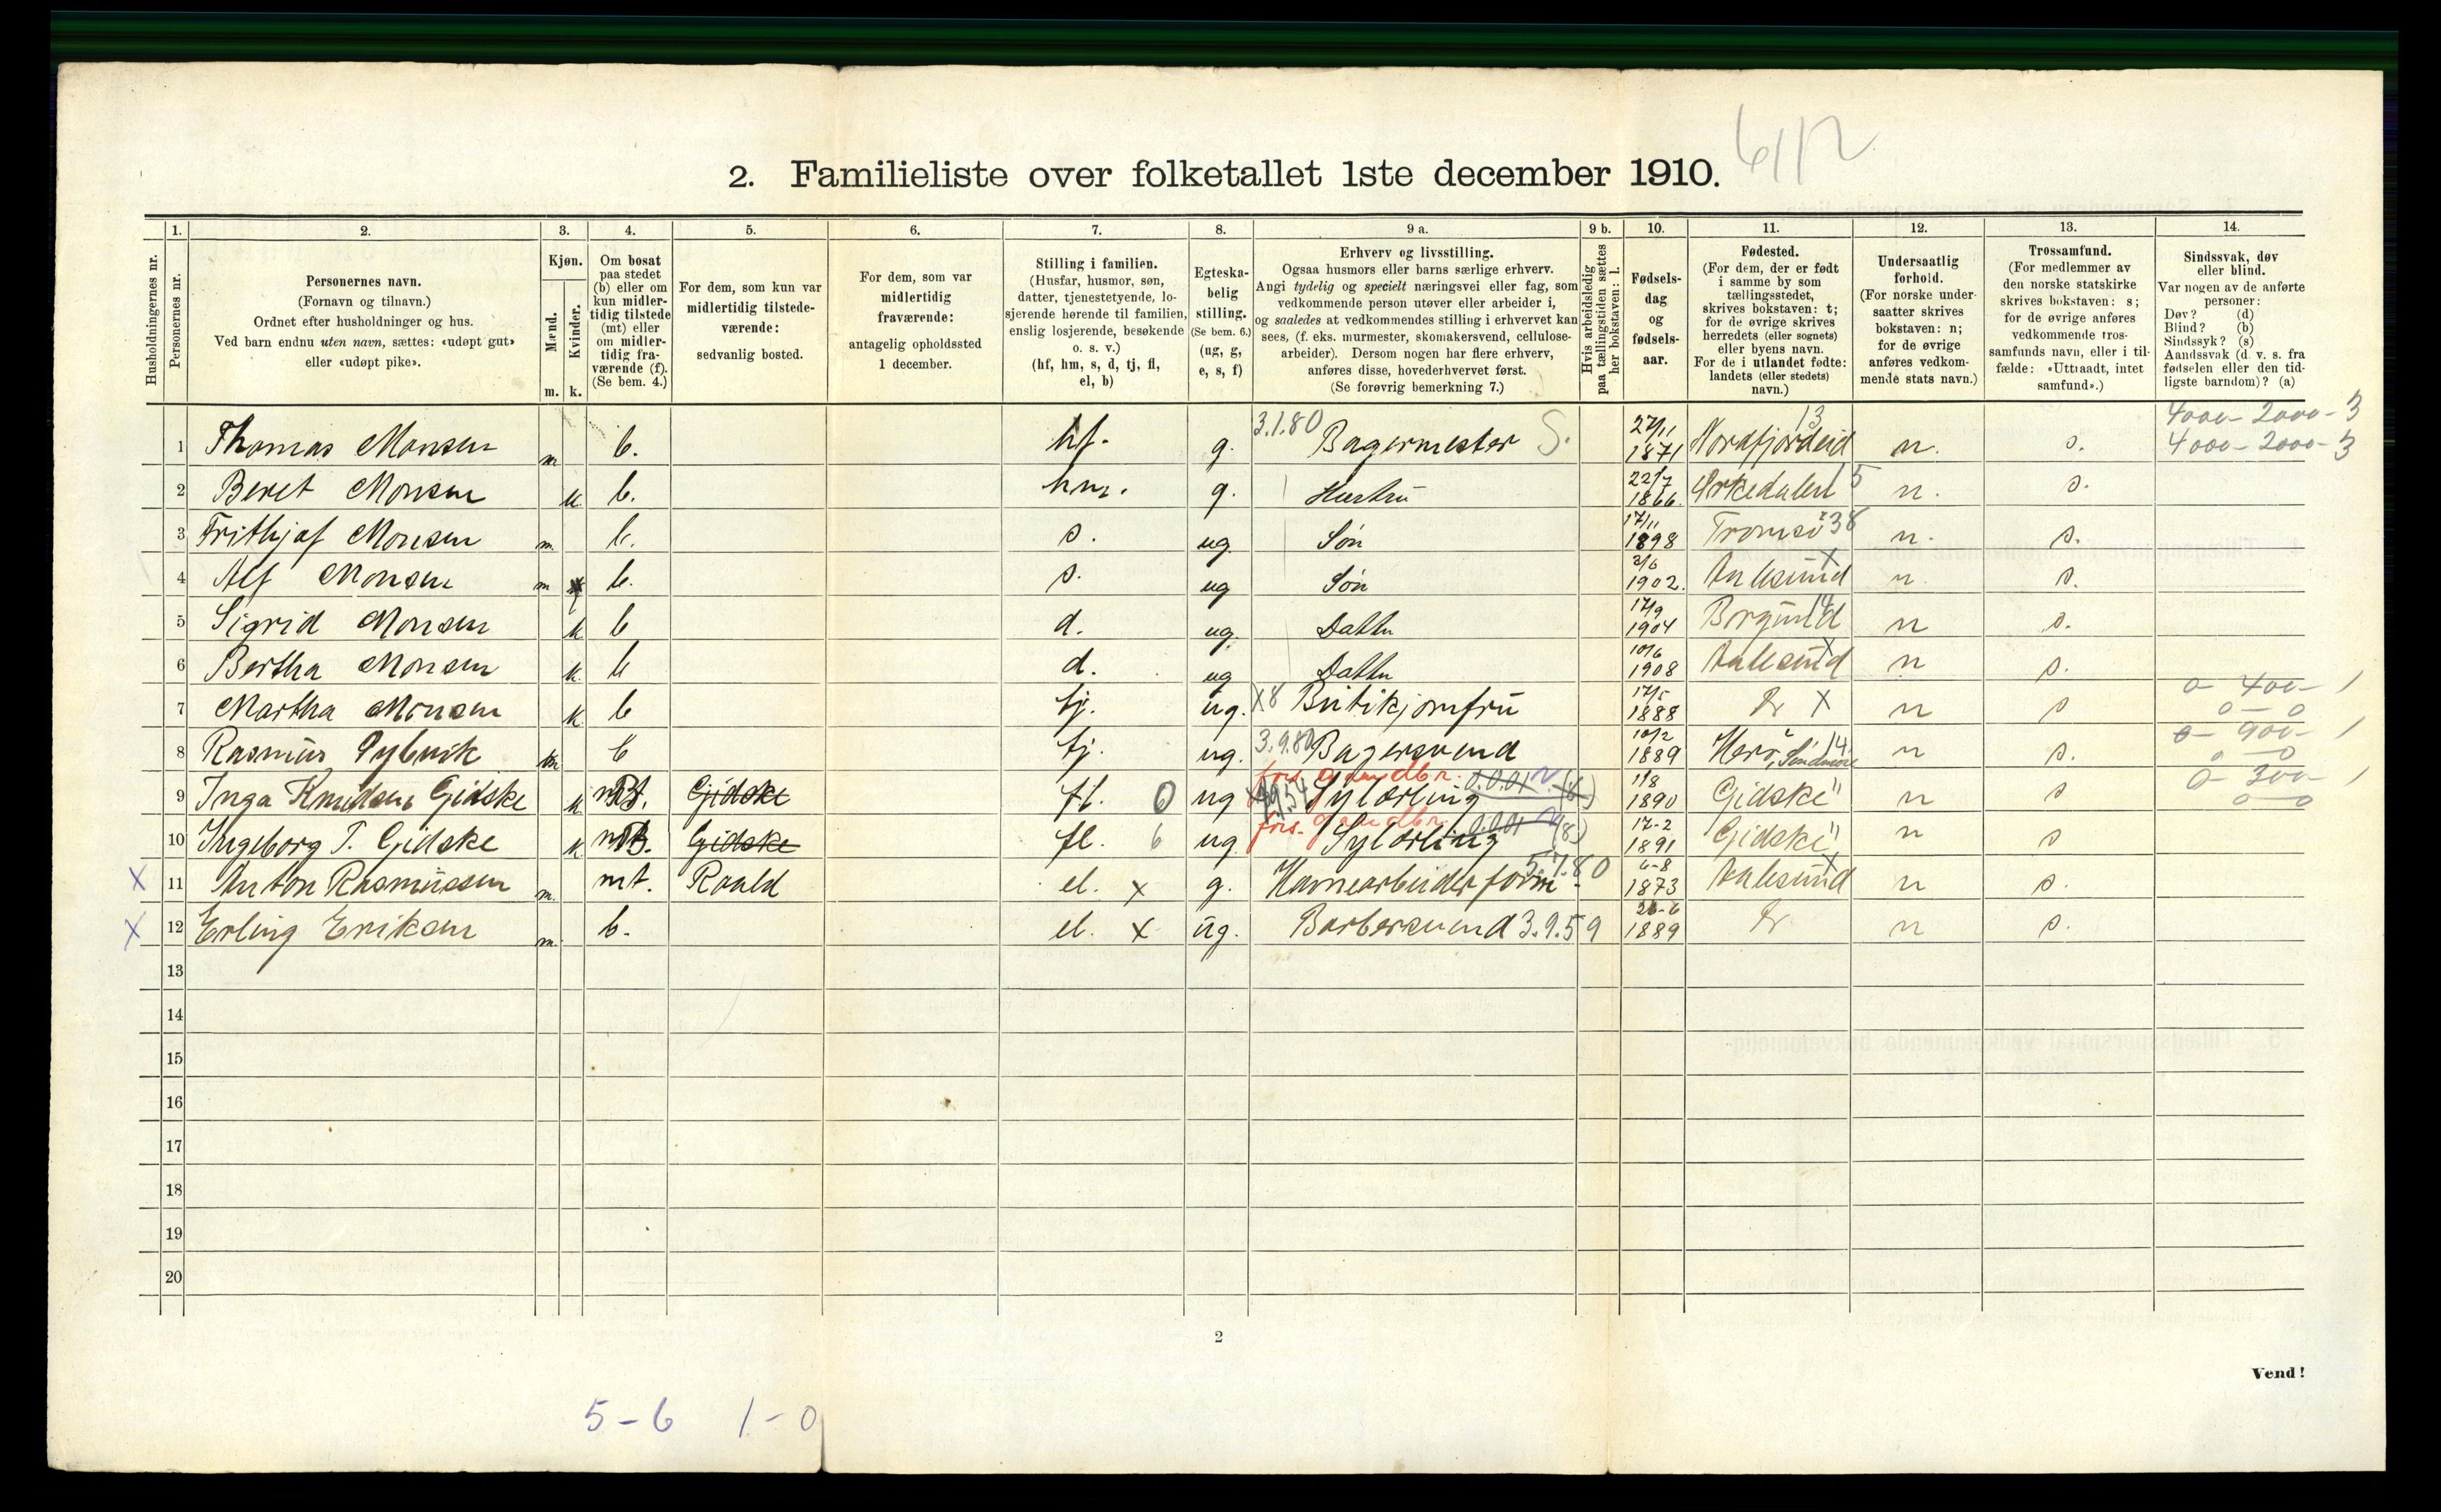 6/12
2. Familieliste over folketallet 1ste december 1910.
Husholdningernes nr.
1. Personernes nr.
2. Personernes navn.
(Fornavn og tilnavn.)
Ordnet efter husholdninger og hus.
Ved barn endnu uten navn, sættes: «udøpt gut»
eller «udøpt pike».
3. Kjøn.
Mænd. Kvinder.
m. k.
4. Om bosat
paa stedet
(b) eller om
kun midler-
tidig tilstede
(mt) eller
om midler-
tidig fra-
værende (f).
(Se bem. 4.)
5. For dem, som kun var
midlertidig tilstede-
værende:
sedvanlig bosted.
6. For dem, som var
midlertidig
fraværende:
antagelig opholdssted
1 december.
7. Stilling i familien.
(Husfar, husmor, søn,
datter, tjenestetyende, lo-
sjerende hørende til familien,
enslig losjerende, besøkende
o. s. v.)
(hf, hm, s, d, tj, fl,
el, b)
8. Egteska-
belig
stilling.
(Se bem. 6.)
(ug, g,
e, s, f)
9 a. Erhverv og livsstilling.
Ogsaa husmors eller barns særlige erhverv.
Angi tydelig og specielt næringsvei eller fag, som
vedkommende person utøver eller arbeider i,
og saaledes at vedkommendes stilling i erhvervet kan
sees, (f. eks. murmester, skomakersvend, cellulose-
arbeider). Dersom nogen har flere erhverv,
anføres disse, hovederhvervet først.
(Se forøvrig bemerkning 7.)
9 b. Hvis arbeidsledig
paa tællingstiden sættes
her bokstaven: l.
10. Fødsels-
dag
og
fødsels-
aar.
11. Fødested.
(For dem, der er født
i samme by som
tællingsstedet,
skrives bokstaven: t;
for de øvrige skrives
herredets (eller sognets)
eller byens navn.
For de i utlandet fødte:
landets (eller stedets)
navn.)
12. Undersaatlig
forhold.
(For norske under-
saatter skrives
bokstaven: n;
for de øvrige
anføres vedkom-
mende stats navn.)
13. Trossamfund.
(For medlemmer av
den norske statskirke
skrives bokstaven: s;
for de øvrige anføres
vedkommende tros-
samfunds navn, eller i til-
fælde: «Uttraadt, intet
samfund».)
14. Sindssvak, døv
eller blind.
Var nogen av de anførte
personer:
Døv? (d)
Blind? (b)
Sindssyk? (s)
Aandssvak (d. v. s. fra
fødselen eller den tid-
ligste barndom)? (a)
1 Thomas Monsen m b. hf. g. 3.1.80 Bagermester S. 27/11 1871 Nordfjordeid 13 n. s. 4000-2000-3
4000-2000-3
2 Beret Monsen k b. hm. g. Hustru 22/7 1866 Orkedalen 15 n. s.
3 Frithjof Monsen m. b. s. ug. Søn 17/11 1898 Tromsø 38 n. s.
4 Alf Monsen m b. s. ug Søn 2/6 1902. Aalesund x n. s.
5 Sigrid Monsen k b d. ug. Datter 17/9 1904 Borgund 14 n s.
6 Bertha Monsen k. b d. ug Datter 10/6 1908 Aalesund x n s.
7 Martha Monsen k b tj. ug. x8 Butikjomfru 17/5 1888 Do X n s 0-400-1
0-0
8 Rasmus m b tj. ug. 3.9.80 Bagersvend 10/2 1889 Herø, Søndmøre 14 n s. 0-900-1
0-0
9 Inga Knudsen Gidske k Gjidske fl. 0 ug Sylærling 0.0.01 (8) 1/8 1890 Gidske " n s 0-300-1
0-0
10 Ingeborg P. Gidske k Gidske fl. 6 ug. Sylærling 0.0.01 (8) 17-2 1891 Gidske " n s
X 11 Anton Rasmussen m. mt. Roald el. x g. Havnearbeider form. 5.7.80 6-8 1873 Aalesund x n s.
X 12 Erling Eriksen m. b. el. x ug. Barbersvend 3.9.59 1889 Do n s.
13
14
15
16
17
18
19
20
2
Vend!
5-6 1-0